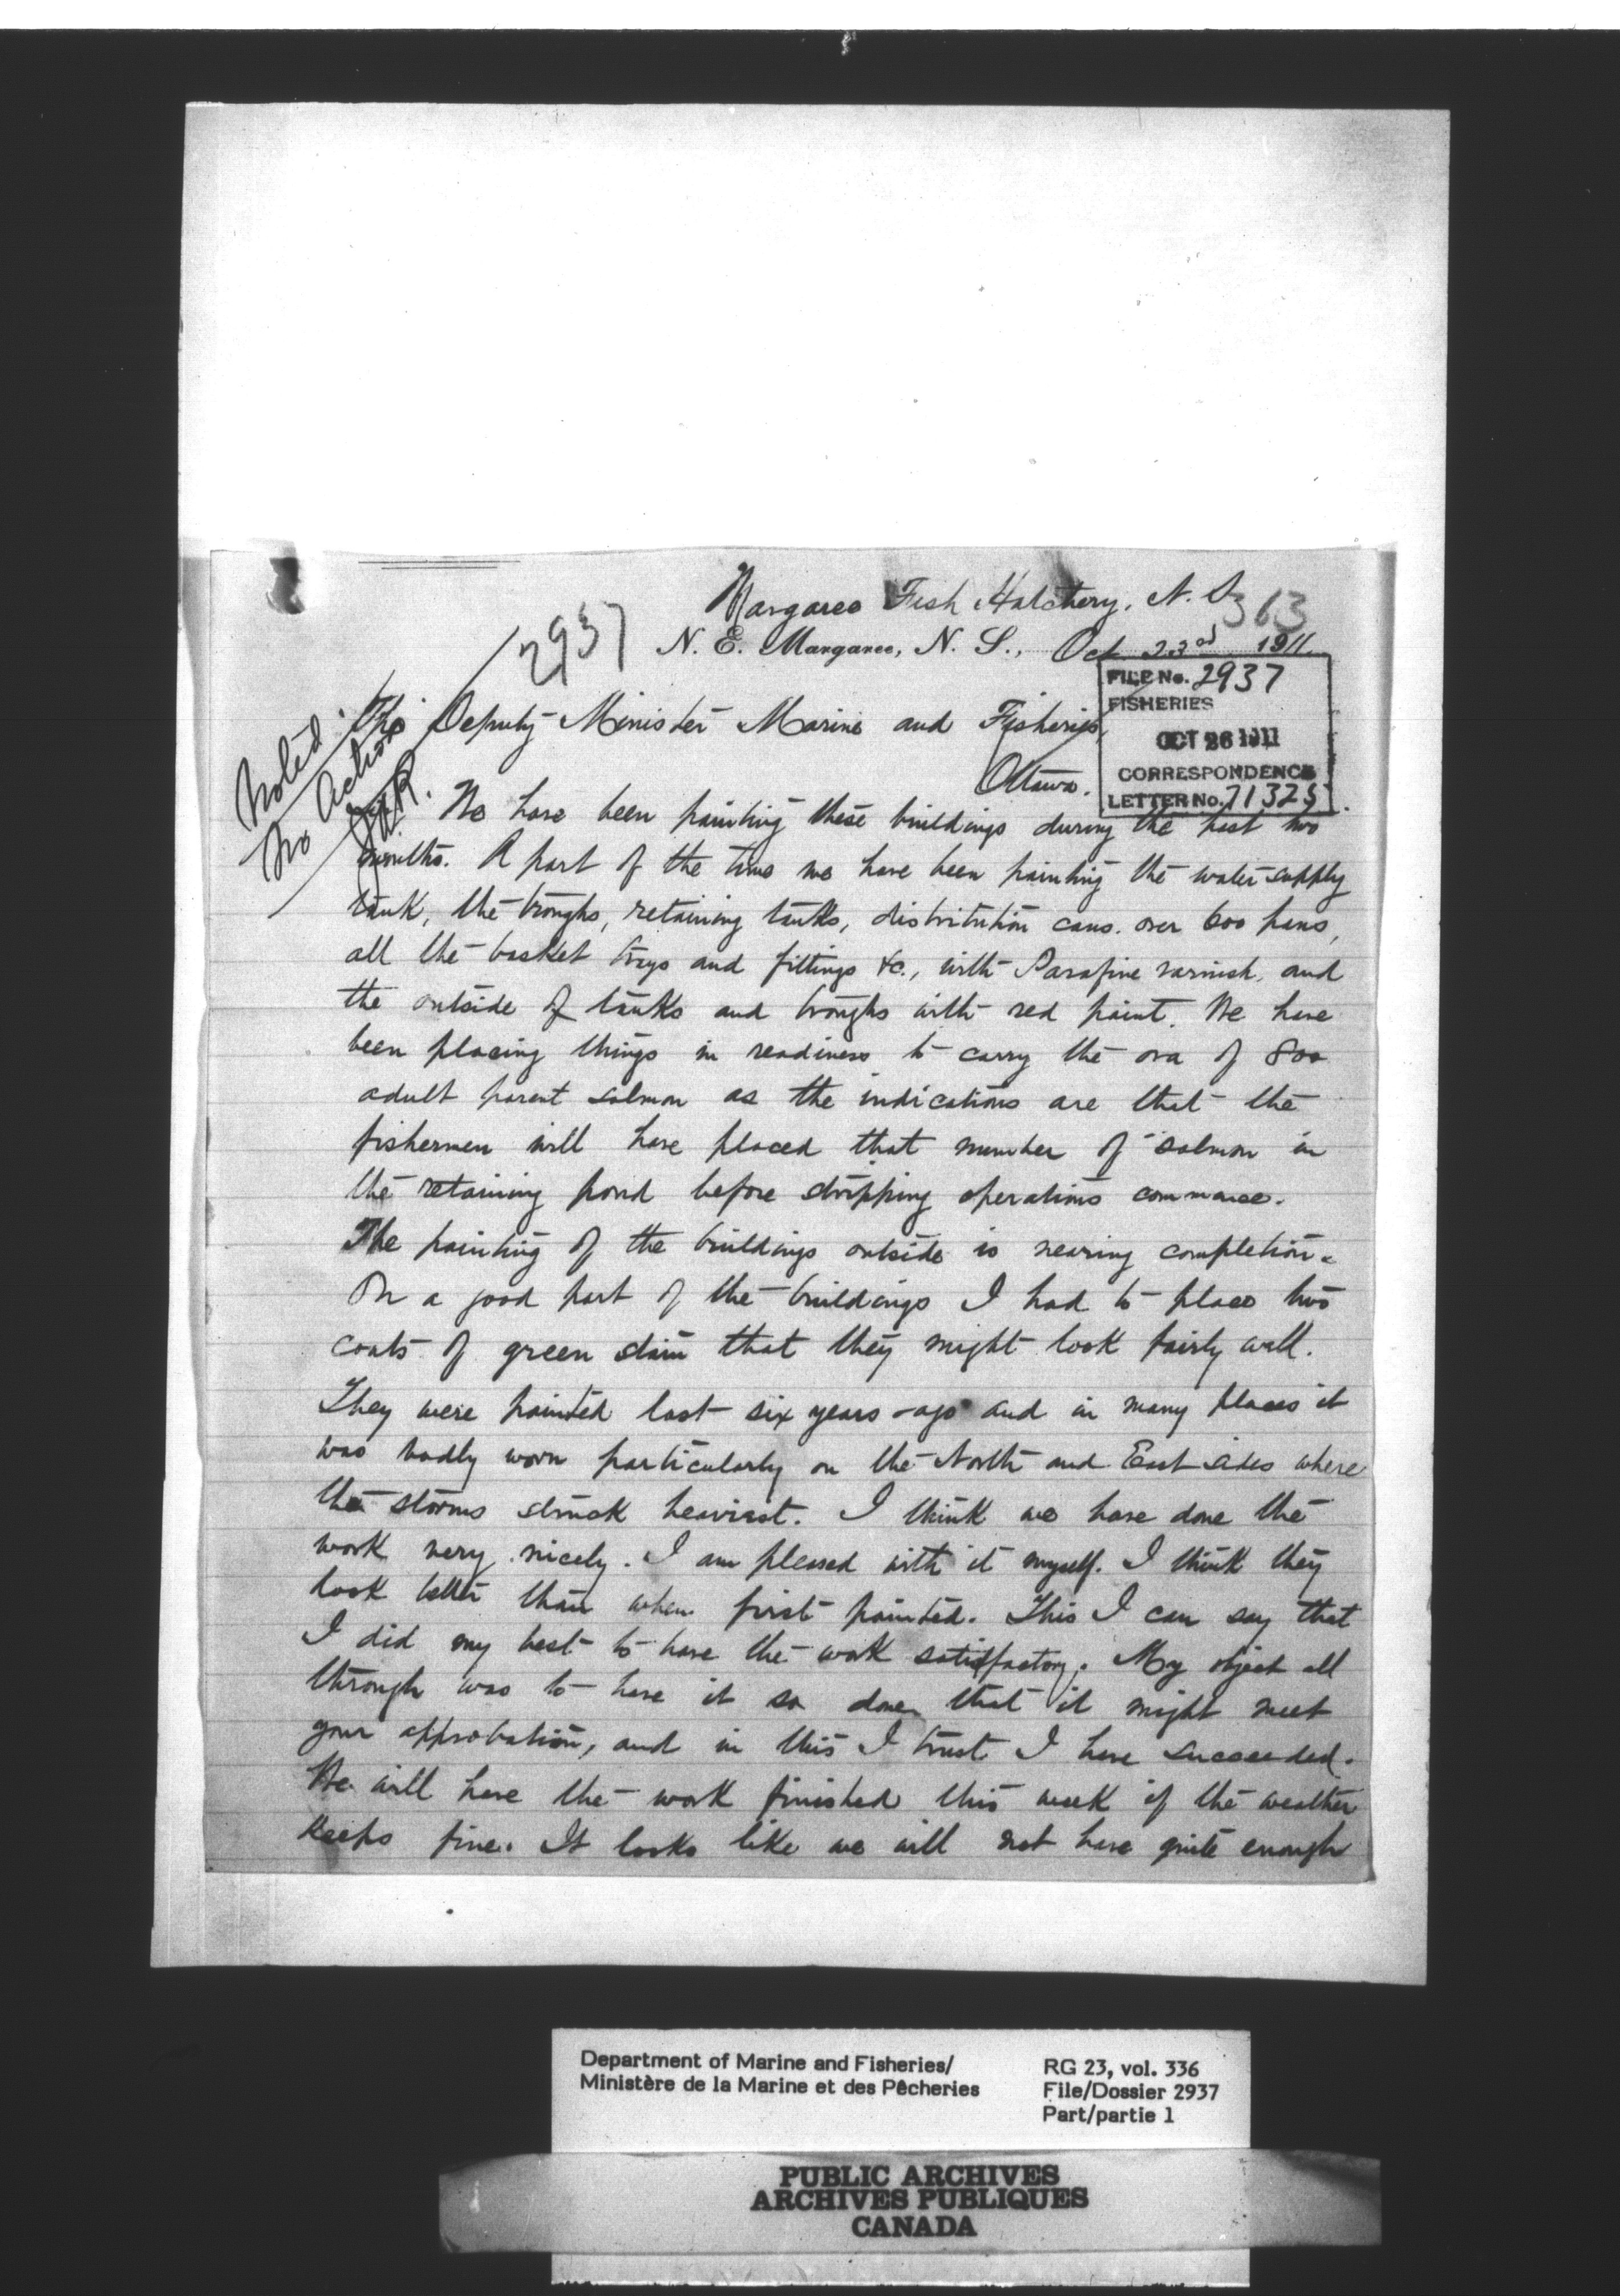 Margaree Fish Hatchery, N. S.
363
2937
N. E. Margaree, N. S., Oct 23rd 1911.
FILE No. 2937
FISHERIES
OCT 26 1911
CORRESPONDENCE
LETTER No. 71325
Noted.
No Action
The Deputy Minister Marine and Fisheries,
Ottawa.
We have been painting these buildings during the past two
months. A part of the time we have been painting the water supply
tank, the troughs, retaining tanks, distribution cans. over 600 pans,
all the basket trays and fittings &c., with Parafine varnish, and
the outside of tanks and troughs with red paint. We have
been placing things in readiness to carry the ova of 800
adult parent salmon as the indications are that the
fishermen will have placed that number of salmon in
the retaining pond before stripping operations commence.
The painting of the buildings outside is nearing completion.
On a good part of the buildings I had to place two
coats of green stain that they might look fairly well.
They were painted last six years ago and in many places it
was badly worn particularly on the North and East sides where
the storms struck heaviest. I think we have done the
work very nicely. I am pleased with it myself. I think they
look better than when first painted. This I can say that
I did my best to have the work satisfactory. My object all
through was to have it so done that it might meet
your approbation, and in this I trust I have succeeded.
We will have the work finished this week if the weather
keeps fine. It looks like we will not have quite enough
Department of Marine and Fisheries/
Ministère de la Marine et des Pêcheries
RG 23, vol. 336
File/Dossier 2937
Part/partie 1
PUBLIC ARCHIVES
ARCHIVES PUBLIQUES
CANADA